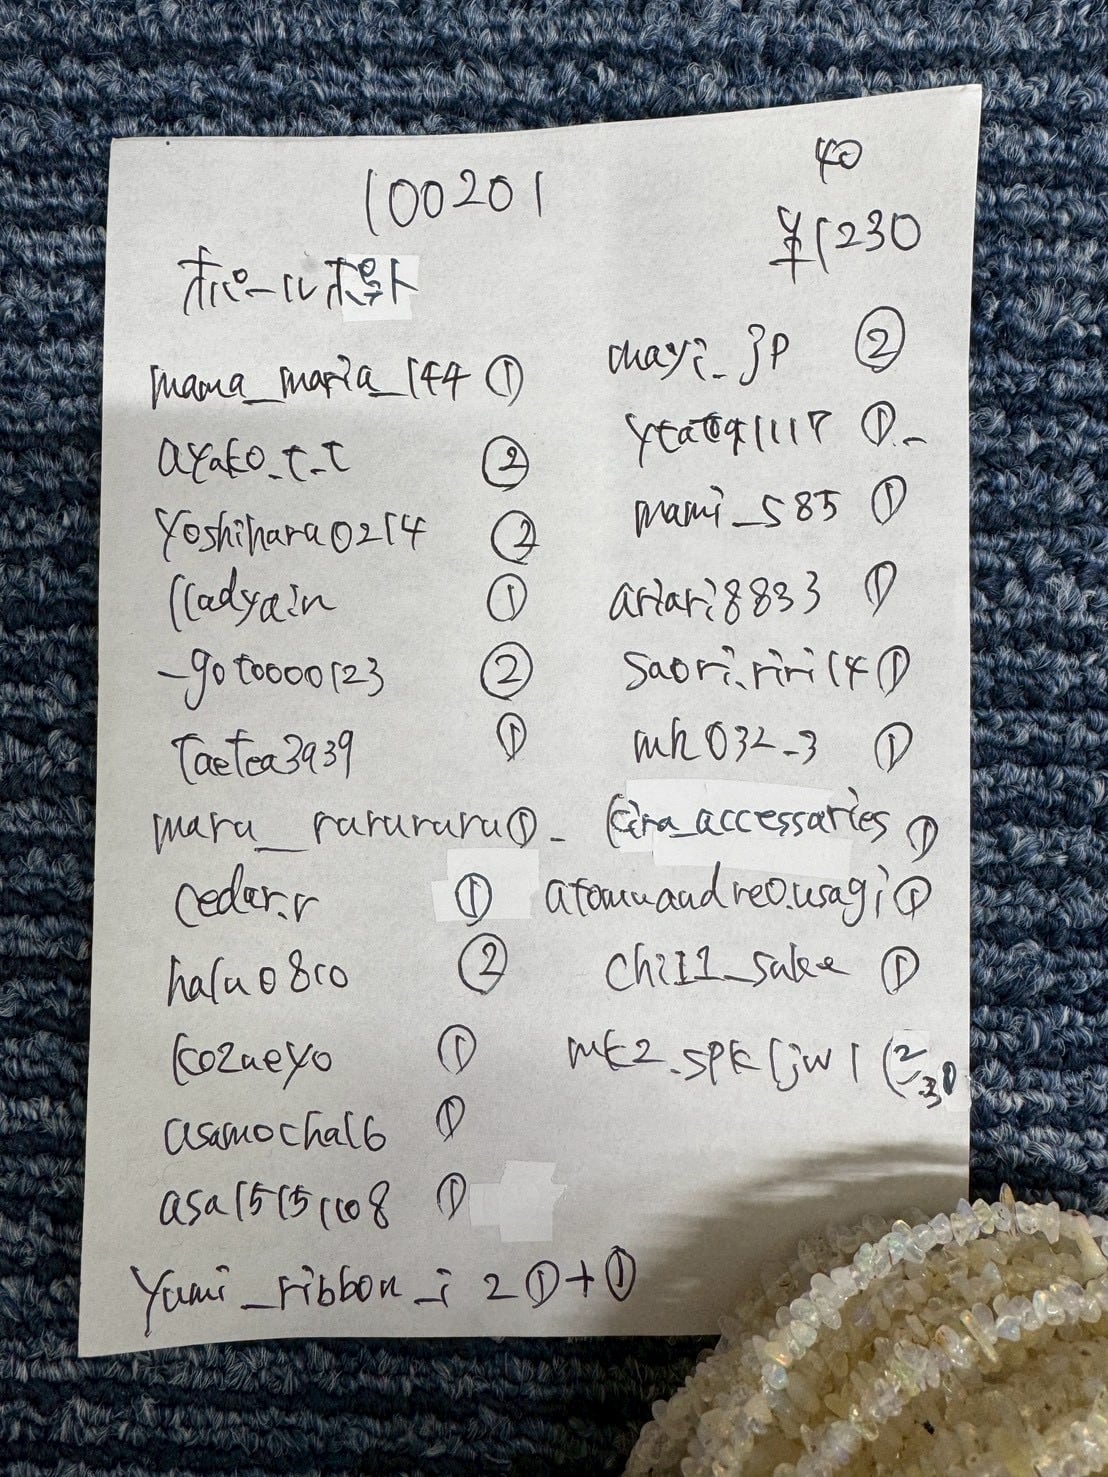 100201
40
¥1230
オパールポスト
mama_maria_144 ①
ayako_t_t ②
yoshihara0214 ②
lladyain ①
_gotoooo123 ②
taetea3939 ①
maru__rurururu ①
cedar.r ①
halu0810 ②
kozueyo ①
asamocha16 ①
asa15151108 ①
yumi_ribbon_i 2 ①+①
mayi_jp ②
①
mami_585 ①
ariari8833 ①
saori.riri14 ①
mh032_3 ①
kira_accessaries ①
atomuandreo.usagi ①
chi11_sake ①
mk2.spkljw1